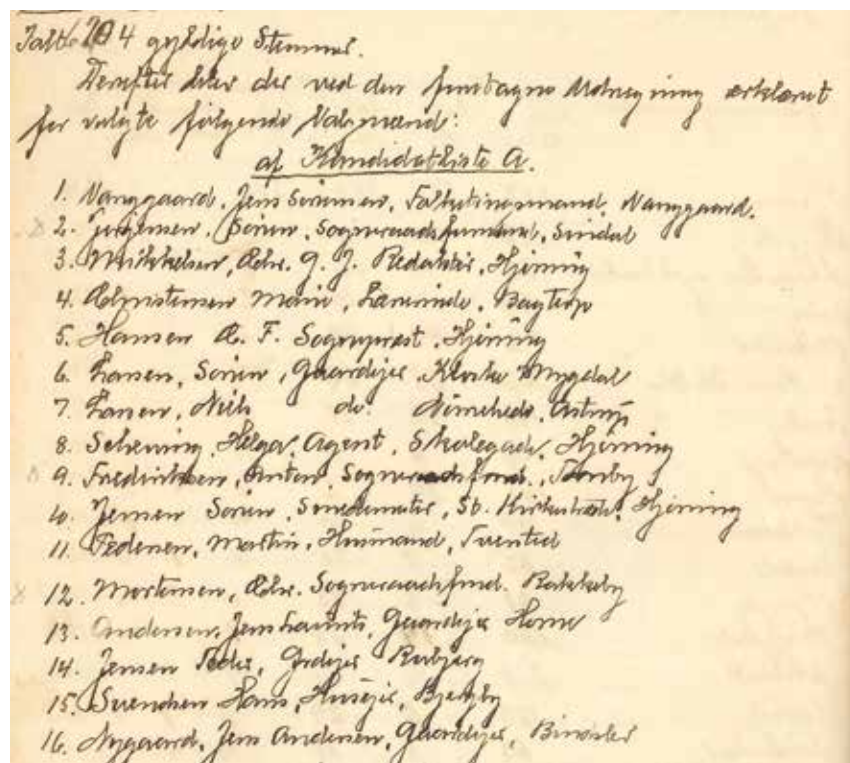 Ialt 204 gyldige Stemmer.
Derefter blev der ved den foretagne Udregning erklæret
for valgte følgende Valgmænd:
af Kandidatliste A.
1. Vanggaard, Jens Sørensen, Folketingsmand, Vanggaard.
2. Jørgensen, Søren, Sogneraadsformand, Sindal
3. Mikkelsen, Chr. G. J. Redaktør, Hjørring
4. Christensen Marie, Lærerinde, Bagterp
5. Hansen C. F. Sognepræst, Hjørring
6. Larsen, Søren, Gaardejer Kloster Mygdal
7. Larsen, Niels do. Nimhede, Astrup
8. Schening, Helga, Agent, Skolegade, Hjørring
9. Fredriksen, Anton, Sogneraadsfmd., Tornby
10. Jensen Søren, Smedemester, St. Kirkestræde, Hjørring
11. Pedersen, Martin, Husmand, Tversted
12. Mortensen, Chr. Sogneraadsfmd. Rakkeby
13. Andersen, Jens Laurits, Gaardejer Horne
14. Jensen Peder, Grdejer Rubjerg
15. Svendsen Hans, Husejer, Bjergby
16. Nygaard, Jens Andersen, Gaardejer, Bindslev